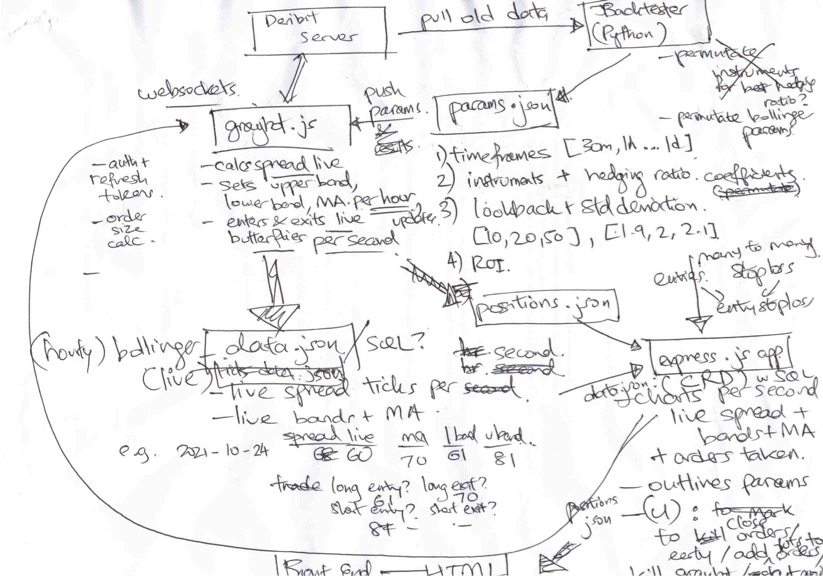 Deribit
server
pull old data
Backtester
(Python)
- permutate
instruments
for best hedge
ratio?
- permutate bollinge
params
websockets.
graybt.js
push
params.
&
params.json
- auth +
refresh
tokens.
- order
size
calc.
-
- calcs spread live
- sets upper band,
lower band, MA per hour
- enters & exits live
butterflies per second
update.
1) timeframes [30m, 1h ... 1d]
2) instruments + hedging ratio. coefficients.
(permutate)
3) lookback + std deviation.
[10, 20, 50], [1.9, 2, 2.1]
4) ROI.
many to many
entries.
stop loss
entry stoplos
positions.json
express.js app
(hourly) bollinger
data.json / SQL?
(live)
- live spread ticks per second
second.
second
- live bands + MA.
e.g. 2021-10-24
spread live
60
ma
70
lband
61
uband..
81
trade long entry? long exit?
61 70
short entry? short exit?
data.json: (CRD) w SQL
- charts per second
live spread +
bands + MA
+ orders taken.
- outlines params
positions
json
- (U) : to mark
close
to kill orders/
early / add orders/
Front End HTML